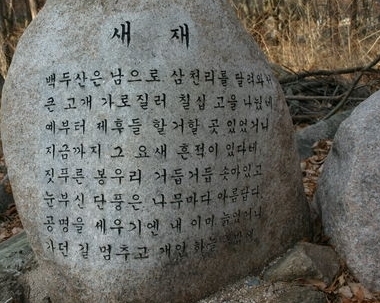 새 재
백두산은 남으로 삼천리를 달려와서
큰 고개 가로질러 칠십 고을 나뉘네
예부터 제후들 할거할 곳 있었거니
지금까지 그 요새 흔적이 있다네
짓푸른 봉우리 거듭거듭 솟아있고
눈부신 단풍은 나무마다 아름답다
공명을 세우기엔 내 이미 늙었거니
가던 길 멈추고 개인 하늘